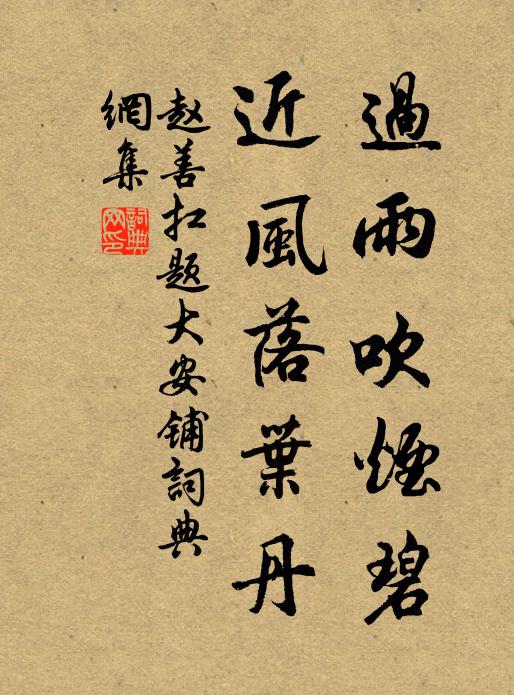 過雨吹煙碧
近風落葉丹
赵善扛题大安铺詞典
網集
詞典網印